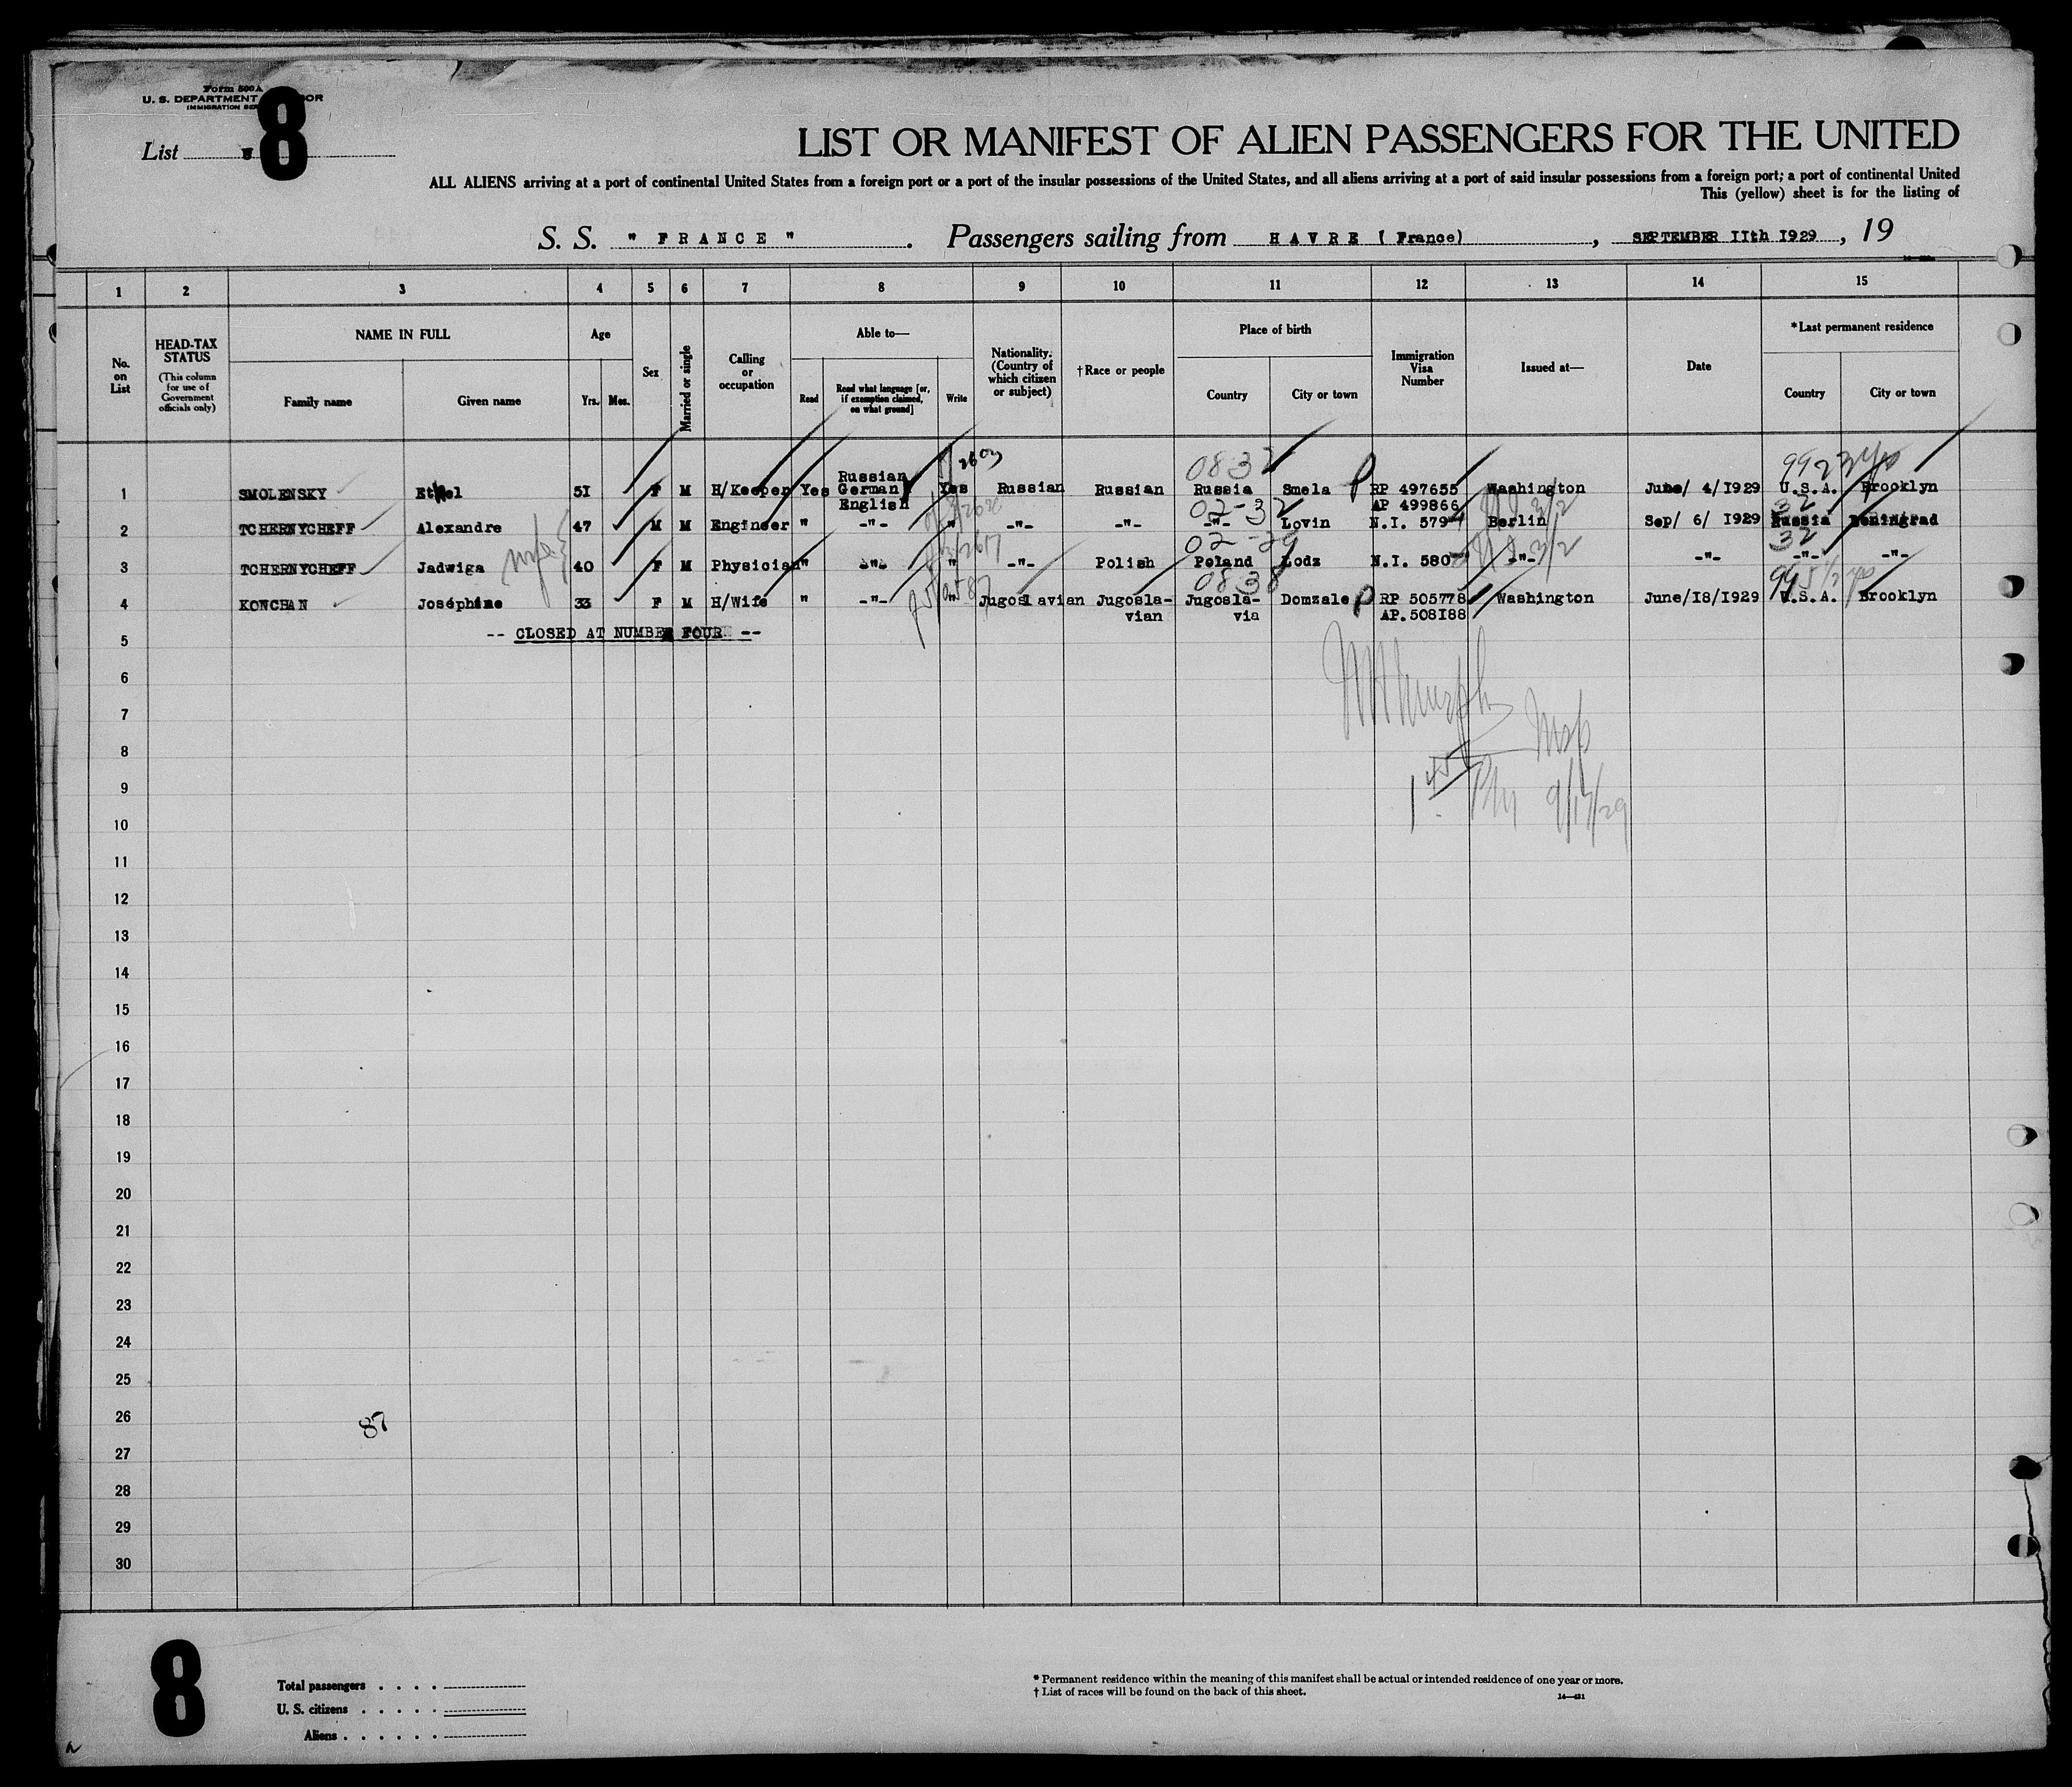 Form 500 A
U. S. DEPARTMENT
IMMIGRATION
8
List
LIST OR MANIFEST OF ALIEN PASSENGERS FOR THE UNITED
ALL ALIENS arriving at a port of continental United States from a foreign port or a port of the insular possessions of the United States, and all aliens arriving at a port of said insular possessions from a foreign port; a port of continental United
This (yellow) sheet is for the listing of
S. S. " FRANCE ". Passengers sailing from HAVRE ( France), SEPTEMBER IIth I929, 19
1 2 3 4 5 6 7 8 9 10 11 12 13 14 15
No. on List
HEAD-TAX STATUS (This column for use of Government officials only)
NAME IN FULL Family name Given name
Age Yrs. Mos.
Sex
Married or single
Calling or occupation
Able to— Read Read what language [or, if exemption claimed, on what ground] Write
Nationality. (Country of which citizen or subject)
†Race or people
Place of birth Country City or town
Immigration Visa Number
Issued at—
Date
*Last permanent residence Country City or town
0832 99 23 yrs
1 SMOLENSKY Ethel 5I F M H/Keeper Yes Russian German English Yes Russian Russian Russia Smela RP 497655 AP 499866 Washington June/ 4/I929 U.S.A. Brooklyn
02-32 32
2 TCHERNYCHEFF Alexandre 47 M M Engineer " -"- " -"- -"- -"- Lovin N.I. 579 Berlin Sep/ 6/ I929 Russia Leningrad
wife 02-29 32
3 TCHERNYCHEFF Jadwiga 40 F M Physician " -"- " -"- Polish Poland Lodz N.I. 580 -"- -"- -"- -"-
0838 99 5½ yrs
4 KONCHAN Joséphine 33 F M H/Wife " -"- " Jugoslavian Jugosla-vian Jugosla-via Domzale RP 505778 AP.508I88 Washington June/I8/I929 U.S.A. Brooklyn
-- CLOSED AT NUMBER FOUR --
5
6
7
8
9
10
11
12
13
14
15
16
17
18
19
20
21
22
23
24
25
26
27
28
29
30
1st 9/17/29
87
8
Total passengers
U. S. citizens
Aliens
* Permanent residence within the meaning of this manifest shall be actual or intended residence of one year or more.
† List of races will be found on the back of this sheet.
14—431